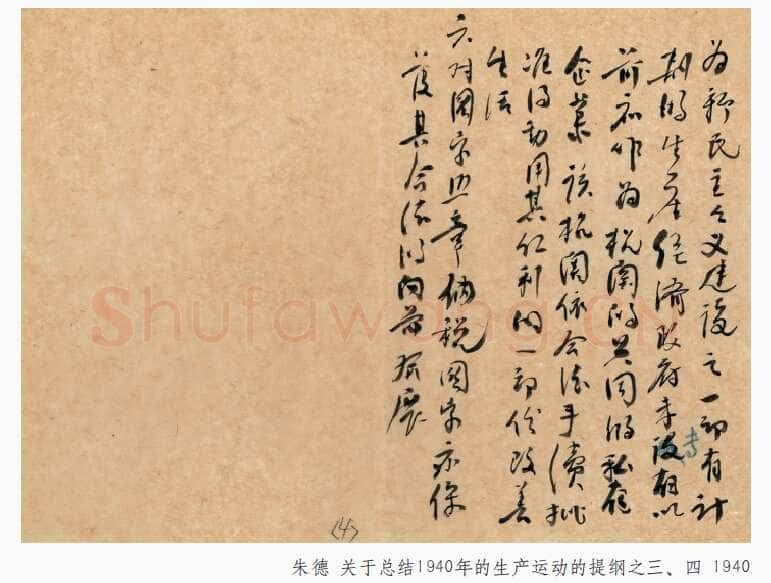 为新民主主义建设之一部有计
的生產经濟政府未设有以
專
前应作为机関的共同的私
企業该机関依合法手續批
准得动用其红利的一部份改善
生活
六对國家照章纳税國家亦保
護其合法的向前发展
(4)
Shufawang.CN
朱德 关于总结1940年的生产运动的提纲之三、四 1940